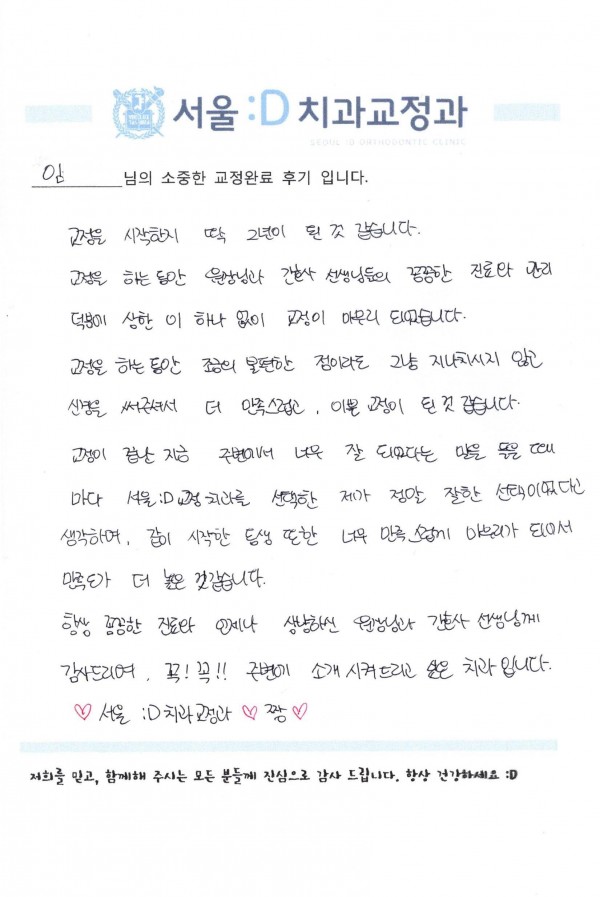 서울 :D 치과교정과
SEOUL :D ORTHODONTIC CLINIC
임 님의 소중한 교정완료 후기 입니다.
교정을 시작한지 딱 2년이 된 것 같습니다.
교정을 하는 동안 원장님과 간호사 선생님들의 꼼꼼한 진료와 관리
덕분에 상한 이 하나 없이 교정이 마무리 되었습니다.
교정을 하는 동안 조금의 불편한 점이라도 그냥 지나치시지 않고
신경을 써주셔서 더 만족스럽고, 이쁜 교정이 된 것 같습니다.
교정이 끝난 지금 주변에서 너무 잘 되었다는 말을 들을 때
마다 서울:D교정 치과를 선택한 제가 정말 잘한 선택이었다고
생각하며, 같이 시작한 동생 또한 너무 만족스럽게 마무리가 되어서
만족도가 더 높은 것같습니다.
항상 꼼꼼한 진료와 언제나 상냥하신 원장님과 간호사 선생님께
감사드리며, 꼭! 꼭!! 주변에 소개 시켜드리고 싶은 치과입니다.
♡ 서울 :D치과교정과 ♡ 짱 ♡
저희를 믿고, 함께해 주시는 모든 분들께 진심으로 감사 드립니다. 항상 건강하세요 :D